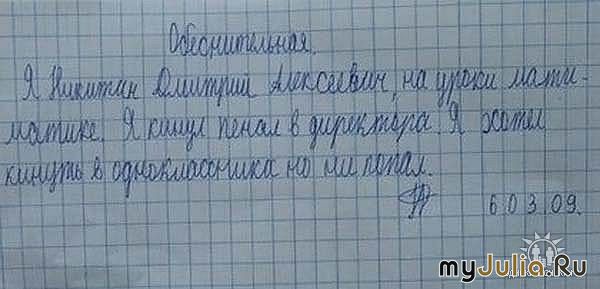 Обеснительная.
Я Никитин Дмитрий Алексеевич, на уроки мати-
матике. Я канул пенал в директора. Я хотел
кинуть в одноклассника но ни попал.
6.03.09.
myJulia.Ru